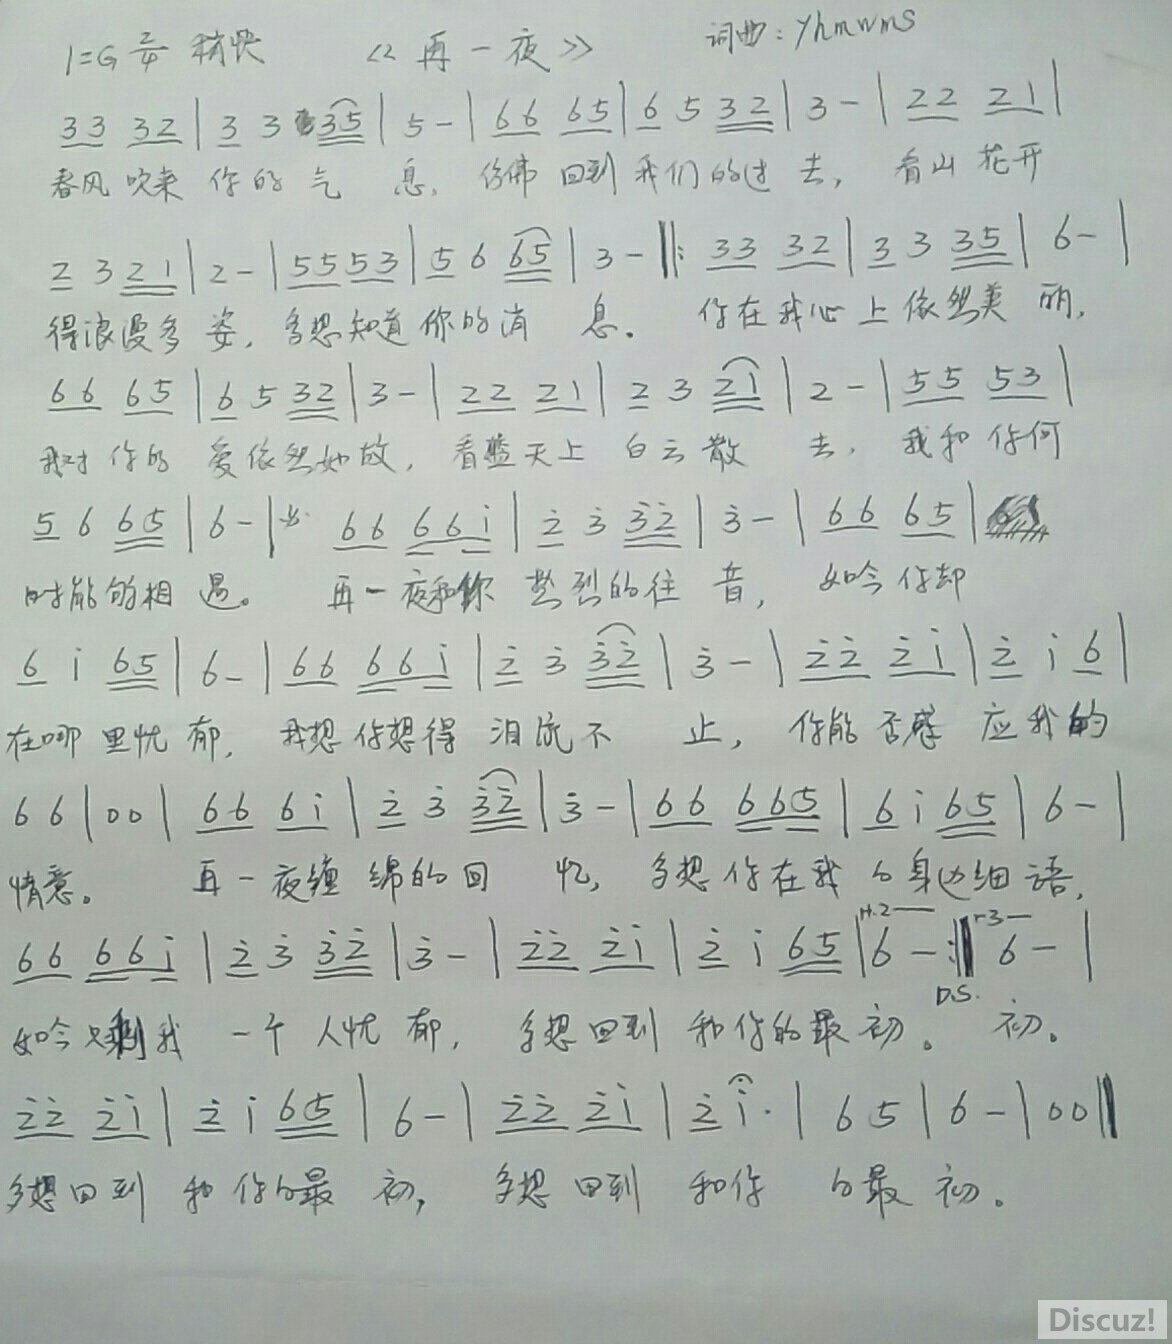 1=G 2/4 稍快 《再一夜》 词曲：yhmwms
33 32 | 3 3 35 | 5 - | 66 65 | 6 5 32 | 3 - | 22 21 |
春风吹来 你的气 息，仿佛回到我们的过去，看山花开
2 3 21 | 2 - | 55 53 | 5 6 65 | 3 - ‖: 33 32 | 3 3 35 | 6 - |
得浪漫多姿，多想知道你的消 息。 你在我心上依然美丽，
66 65 | 6 5 32 | 3 - | 22 21 | 2 3 21 | 2 - | 55 53 |
我对你的爱依然如故，看蓝天上白云散 去，我和你何
5 6 65 | 6 - | 66 66i | 2̇ 3̇ 3̇2̇ | 3̇ - | 66 65 |
时能够相遇。 再一夜和你热烈的往音，如今你却
6 i 65 | 6 - | 66 66i | 2̇ 3̇ 3̇2̇ | 3̇ - | 2̇2̇ 2̇i | 2̇ i 6 |
在哪里忧郁，我想你想得泪流不 止，你能否感应我的
6 6 | 0 0 | 66 6i | 2̇ 3̇ 3̇2̇ | 3̇ - | 66 665 | 6 i 65 | 6 - |
情意。 再一夜缠绵的回 忆，多想你在我的身边细语，
66 66i | 2̇ 3̇ 3̇2̇ | 3̇ - | 2̇2̇ 2̇i | 2̇ i 65 | 6 - :‖ 6 - |
D.S.
如今只剩我一个人忧郁，多想回到和你的最初。 初。
2̇2̇ 2̇i | 2̇ i 65 | 6 - | 2̇2̇ 2̇i | 2̇ i· | 6 5 | 6 - | 0 0 ‖
多想回到和你的最初，多想回到和你的最初。
Discuz!